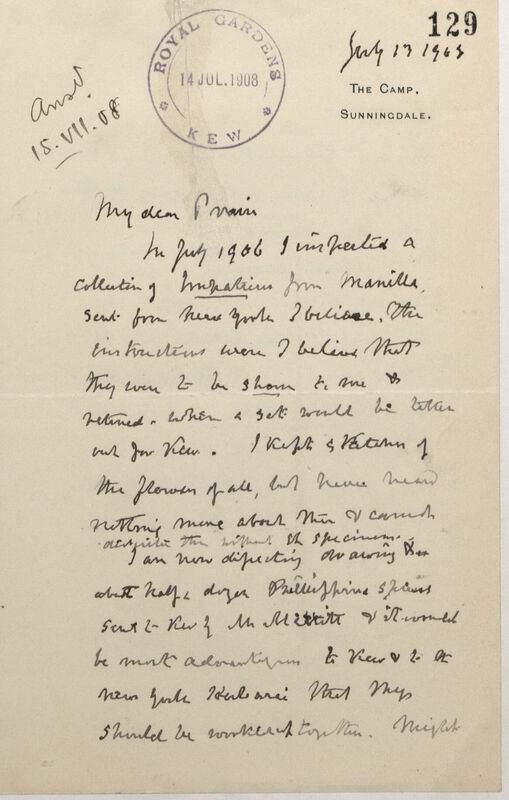 129
July 13 1908
THE CAMP,
SUNNINGDALE.
ROYAL GARDENS
14 JUL. 1908
KEW
Ansd.
15.VII.08
My dear Prain
In July 1906 I inspected a
collection of Impatiens from Manilla,
sent from New York I believe. The
instructions were I believe that
they were to be shown to me &
returned - when a set would be
out for Kew. I kept sketches of
the flowers of all, but have heard
nothing more about them & cannot
describe them without the specimens.
I am now dissecting drawing &
about half a dozen Philippine species
sent to Kew by Mr Merritt & it would
be most advantageous to Kew & to the
New York Herbaria that they
should be worked up together. Might